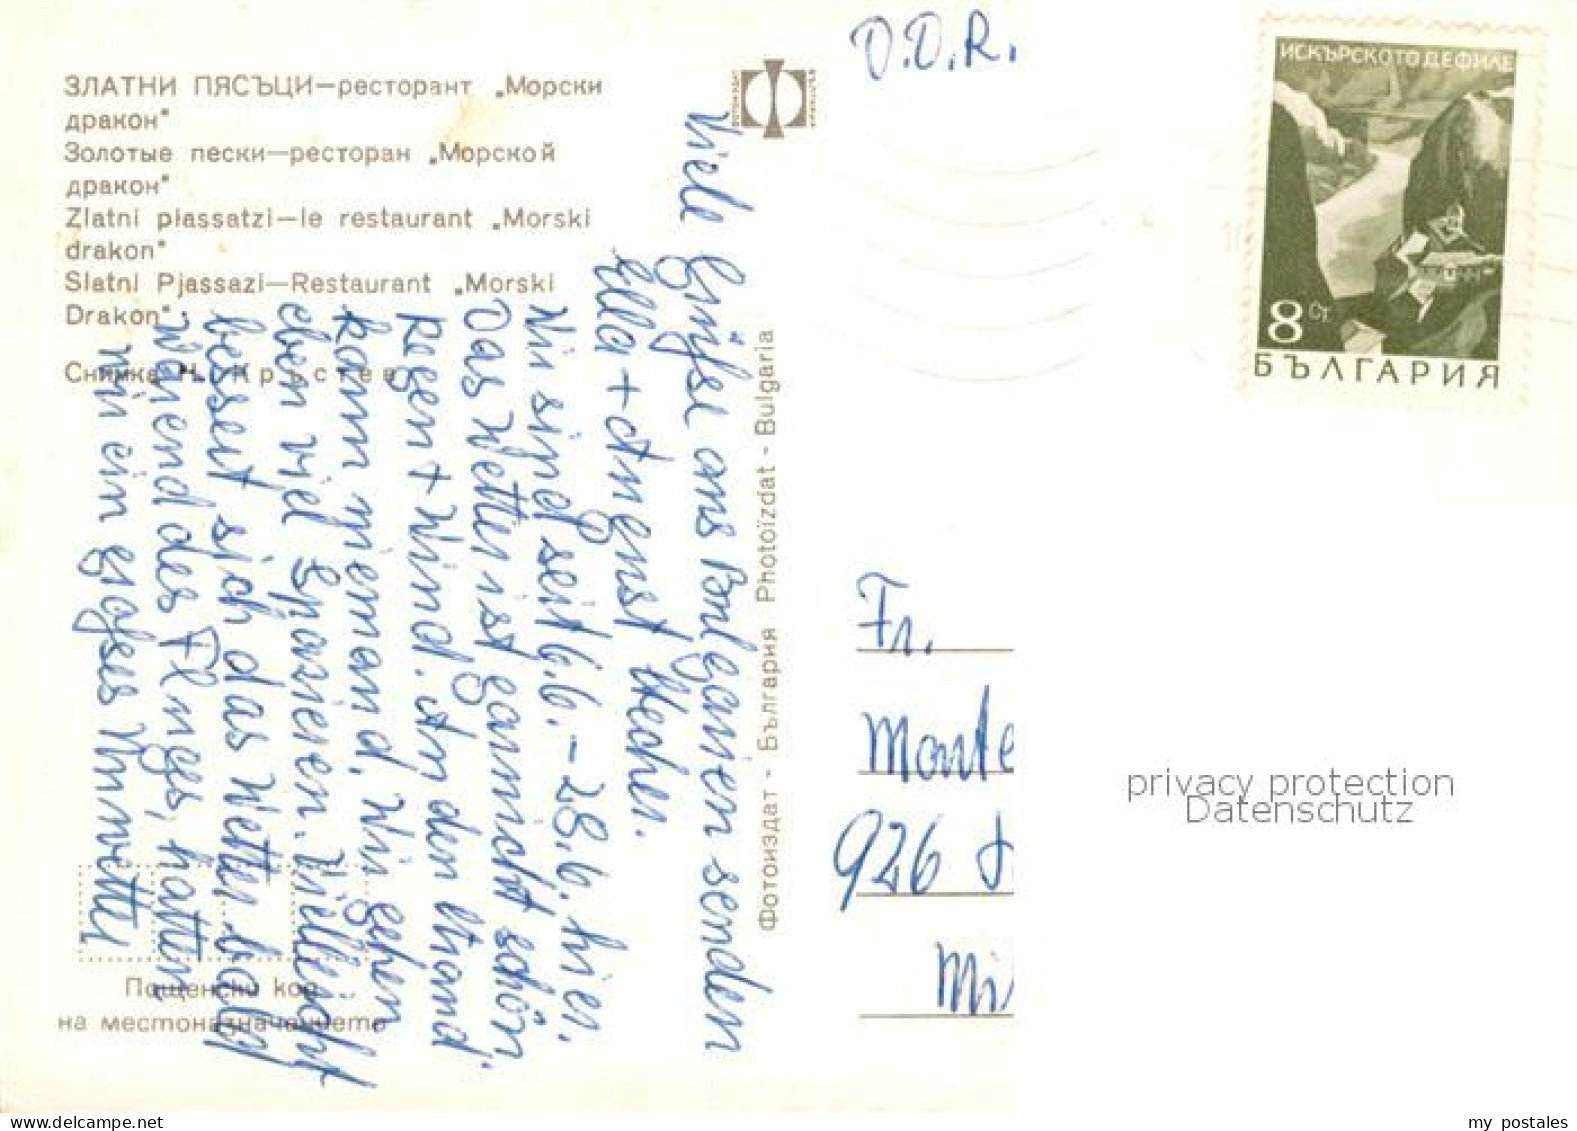 ЗЛАТНИ ПЯСЪЦИ—ресторант „Морски
дракон"
Золотые пески—ресторан „Морской
дракон"
Zlatni plassatzi—le restaurant „Morski
drakon"
Slatni Pjassazi—Restaurant „Morski
Drakon"
Снимка Н. Кръстев
Viele Grüße aus Bulgarien senden
Ella + August
Wir sind seit 6.6. – 28.6. hier.
Das Wetter ist garnicht schön,
Regen + Wind. An den Strand
kann niemand. Wir gehen
eben viel spazieren. Vielleicht
bessert sich das Wetter bald
Wärend des Fluges, hatten
wir ein großes Unwetter
Пощенски код
на местоназначението
Фотоиздат - България Photoïzdat - Bulgaria
D.D.R.
ИСКЪРСКОТО ДЕФИЛЕ
8 Ст.
БЪЛГАРИЯ
Fr.
926
privacy protection
Datenschutz
my postales